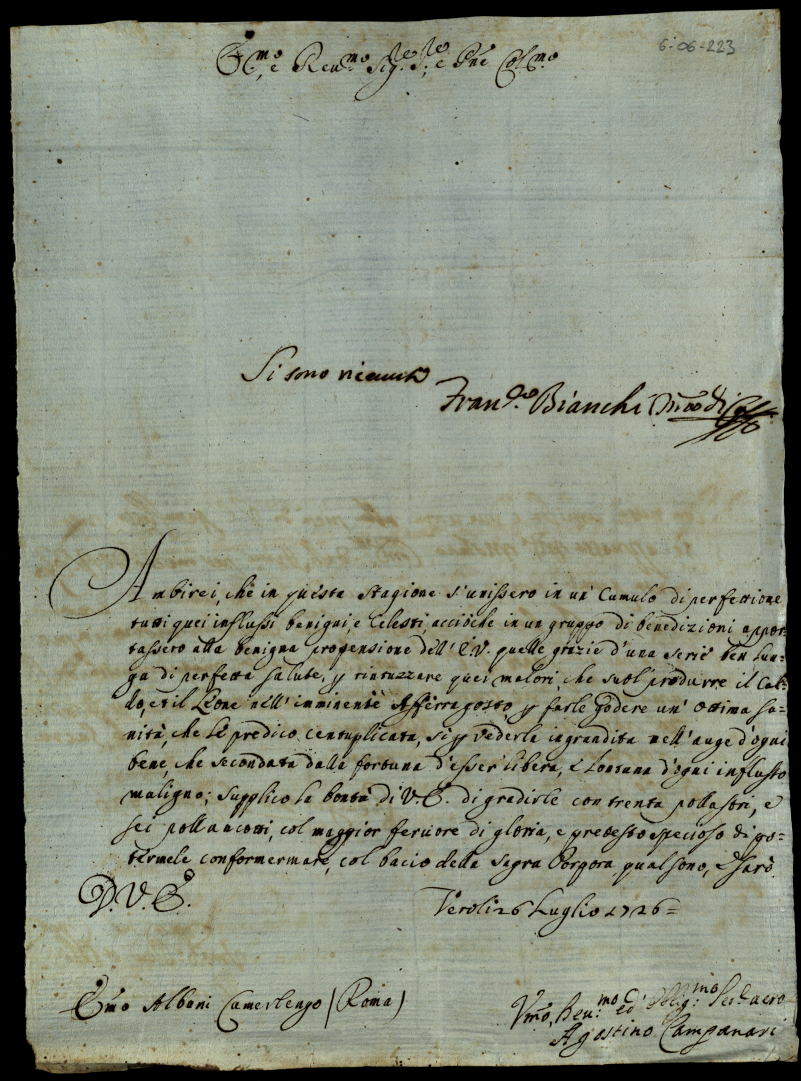 6-06-223
Em̃o, e Reu.mo Sig.re S.re e Pñe Col.mo
Si sono riceuuti
Fran.co Bianchi
Ambirei, che in questa stagione s'unissero in un' Cumulo di perfettione
tutti quei influssi benigni, e Celesti, acciòche in un gruppo di benedizioni appor=
tassero alla benigna propensione dell' E.V. quelle grazie d'una serie ben lun=
ga di perfetta salute, p rintuzzare quei malori, che suol produrre il Cal=
do, et il Leone nell' imminente Afferragosto, p farle godere un' ottima sa=
nità, che Le predico centuplicata, si p vederla ingrandita nell' auge d'ogni
bene, che secondata dalla fortuna d'esser libera, e Lontana d'ogni influsso
maligno; supplico la bontà di V.E. di gradirle con trenta pollastri, e
sei pollancotti, col maggior feruore di gloria, e pretesto specioso di po=
termele conformermare, col bacio della sagra Porpora qual sono, e sarò
D. V. E.
Veroli 26 Luglio 1726=
Em̃o Albani Camerlengo (Roma)
Vm̃o, Deu.mo ed' Oblig.mo Seruitore
Agostino Campanari